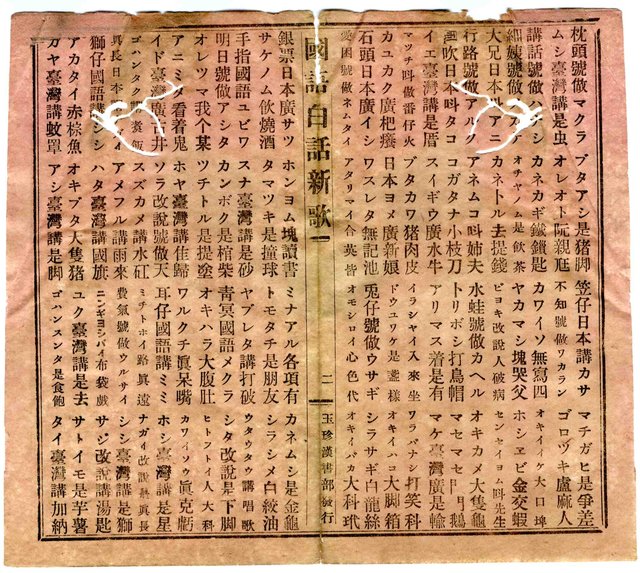 枕頭號做マクラ ブタアシ是猪脚 笠仔日本講カサ マチガヒ是爭差
ムシ臺灣講是虫 オレオト阮親尫 不知號做ワカラン ゴロヅキ盧麻人
講話號做ハナシ カネカギ鉄鎖匙 カワイソ無寫四 オキイイケ大口埤
細姨號做 オチヤム是飲茶 ヤカマシ塊哭父 ホシヱビ金交蝦
大兄日本叫アニ カネトル去提錢 ビヨキ改說人破病 センセイヨム叫先生
行路號做アルク アネムコ叫姉夫 水蛙號做カヘル オキカメ大隻龜
風吹日本叫タコ コガタナ小枝刀 トリボシ打鳥帽 マセマセ鬥鬥鵝
イエ臺灣講是厝 スイギウ廣水牛 アリマス着是有 マケ臺灣廣是輸
マツチ叫做雷仔火 ブタカワ猪肉皮 イラシヤイ入來坐 ワラバナシ打笑科
カユカク廣杷癢 日本ヨメ廣新娘 ドウユリケ是盞樣 オキイハコ大脚箱
石頭日本廣イシ ワスレタ無記池 兎仔號做ウサギ シラサギ白龍絲
愛困號做ネムタイ アタリマイ合英皆 オモシロイ心色代 オキイバカ大科玳
國語白話新歌 一 二 玉珍漢書部發行
銀票日本廣サツ ホンヨム塊讀書 ミナアル各項有 カネムシ是金龜
サケノム飲燒酒 タマツキ是撞球 トモタチ是朋友 シラシメ白絞油
手指國語ユビワ スナ臺灣講是砂 ヤブレタ講打破 ウタウタウ講唱歌
明日號做アシタ カンボク是棺柴 青冥國語メクラ シタ改說是下脚
オレツマ我个某 ツチトル是提塗 オキハラ大腹肚 ヒトフトイ人大科
アニミル看着鬼 ホヤ臺灣講佳歸 ワルクチ眞呆嘴 カワイソウ眞克虧
イド臺灣廣古井 ソラ改說號做天 耳仔國語講ミミ ホシ臺灣講是星
飯 スズカメ講水缸 ミチトホイ路眞遠 ナガイ改說是眞長
眞長日本 アメフル講雨來 費氣號做ウルサイ シシ臺灣講是獅
獅仔國語講シシ ハタ臺灣講國旗 ニンギヨシバイ布袋戲 サジ改說講湯匙
アカタイ赤棕魚 オキブタ大隻猪 ユク臺灣講是去 サトイモ是芋薯
カヤ臺灣講蚊罩 アシ臺灣講是脚 ゴハンスンタ是食飽 タイ臺灣講加納